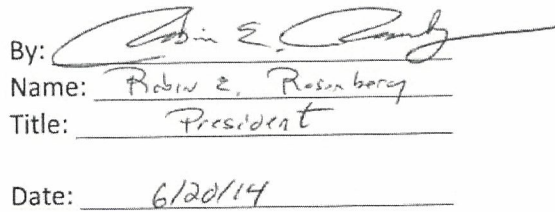 By: Robin E. Rosenberg
Name: Robin E. Rosenberg
Title: President
Date: 6/20/14